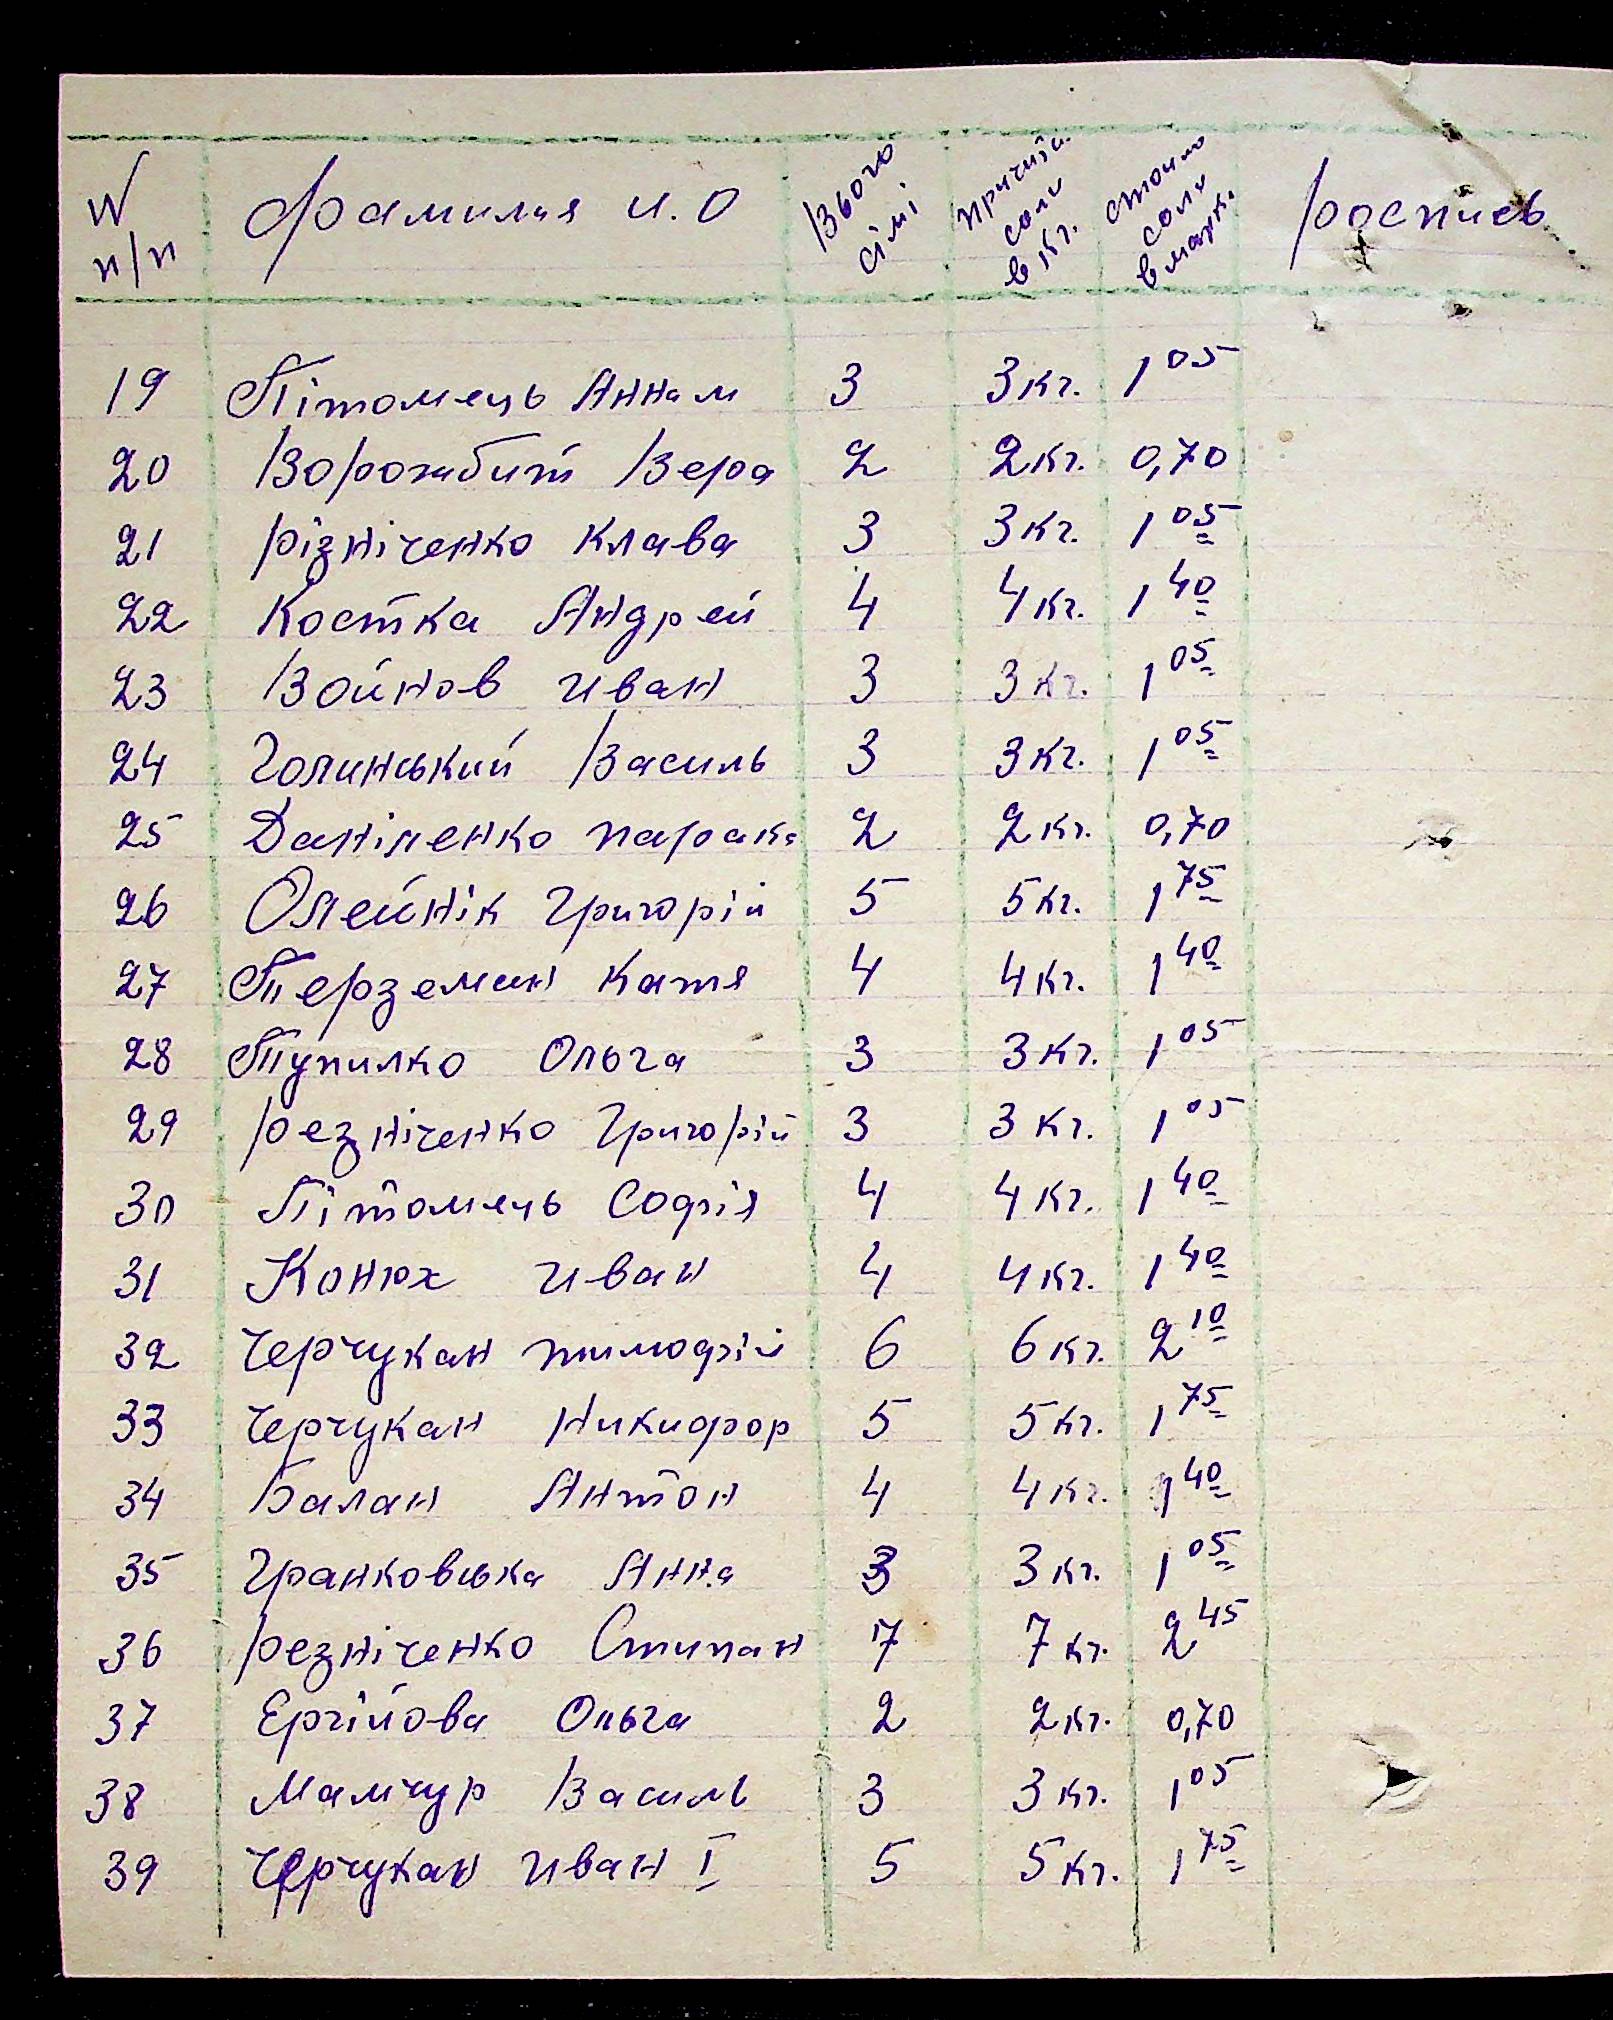 N п/п Фамилия и. О Всього сімі причита. соли в кг. стоимо соли в марк. роспись
19 Пітомець Анна м 3 3 кг. 1 05
20 Ворожбит Вера 2 2 кг. 0,70
21 Різніченко Клава 3 3 кг. 1 05
22 Костка Андрей 4 4 кг. 1 40
23 Войнов иван 3 3 кг. 1 05
24 Голинський Василь 3 3 кг. 1 05
25 Даніленко парака 2 2 кг. 0,70
26 Олейнік Григорій 5 5 кг. 1 75
27 Терземан Катя 4 4 кг. 1 40
28 Тупилко Ольга 3 3 кг. 1 05
29 Резніченко Григорій 3 3 кг. 1 05
30 Пітомець Софія 4 4 кг. 1 40
31 Конюх иван 4 4 кг. 1 40
32 Черчукан тимофій 6 6 кг. 2 10
33 Черчукан Никифор 5 5 кг. 1 75
34 Балан Антон 4 4 кг. 1 40
35 Гранковська Анна 3 3 кг. 1 05
36 Резніченко Стипан 7 7 кг. 2 45
37 Ергійова Ольга 2 2 кг. 0,70
38 Мамчур Василь 3 3 кг. 1 05
39 Черчукан иван I 5 5 кг. 1 75